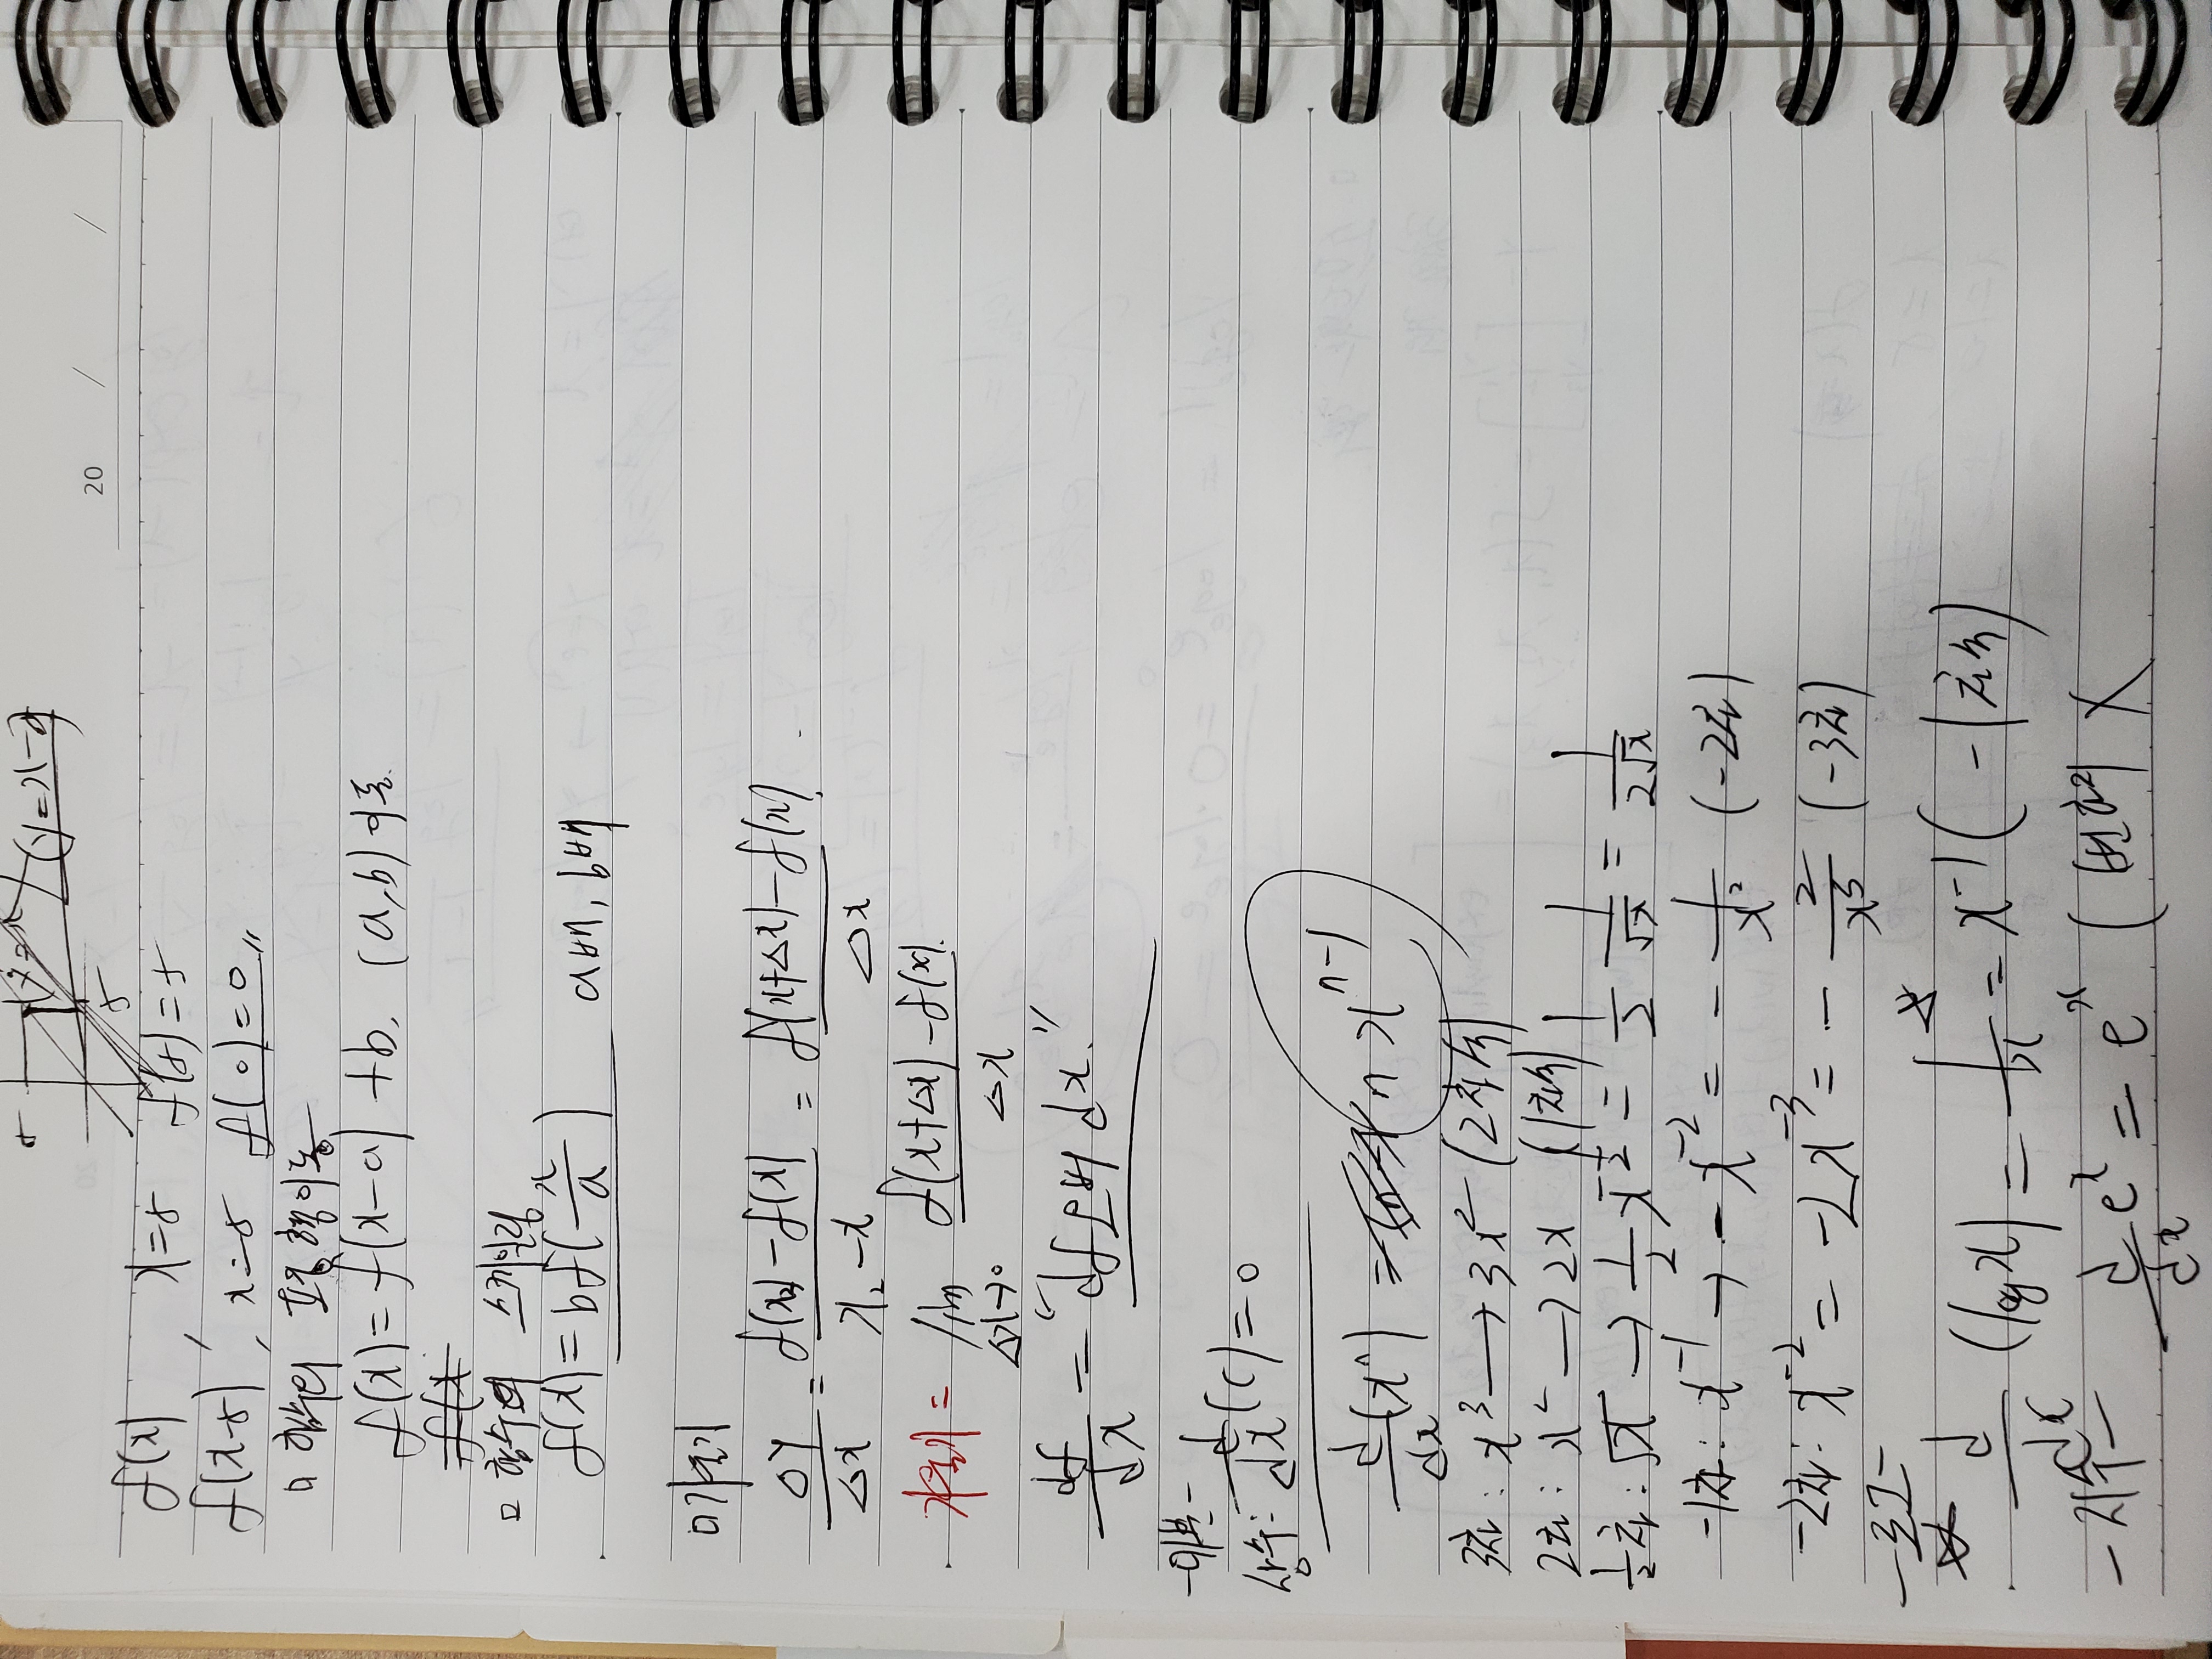 y=x (y=x-5)
5
20 / /
f(x), x=5 f(5)=5
f(x-5), x=5 f(0)=0,,
□ 함수의 평행이동
f(x)=f(x-a)+b, (a,b) 이동.
f(x
□ 함수의 스케일링
f(x)=bf(x/a) a배, b배
□ 기울기
△y/△x = f(x₂)-f(x)/x₂-x = f(x+△x)-f(x)/△x
기울기= lim △x→0 f(x+△x)-f(x)/△x
df/dx = "df오버 dx."
-미분-
상수: d/dx(c)=0
d/dx(xⁿ) = n xⁿ⁻¹
3차: x³ → 3x² (2차식)
2차: x² → 2x (1차식)
1/2차: √x → 1/2 x^-1/2 = 1/2 1/√x = 1/2√x
-1차: x⁻¹ → -x⁻² = - 1/x² (-2차)
-2차: x⁻² = -2x⁻³ = - 2/x³ (-3차)
-로그-
☆ d/dx (log x) = 1/x = x⁻¹ (-1차식)
-지수- d/dx eˣ = eˣ (변화 X